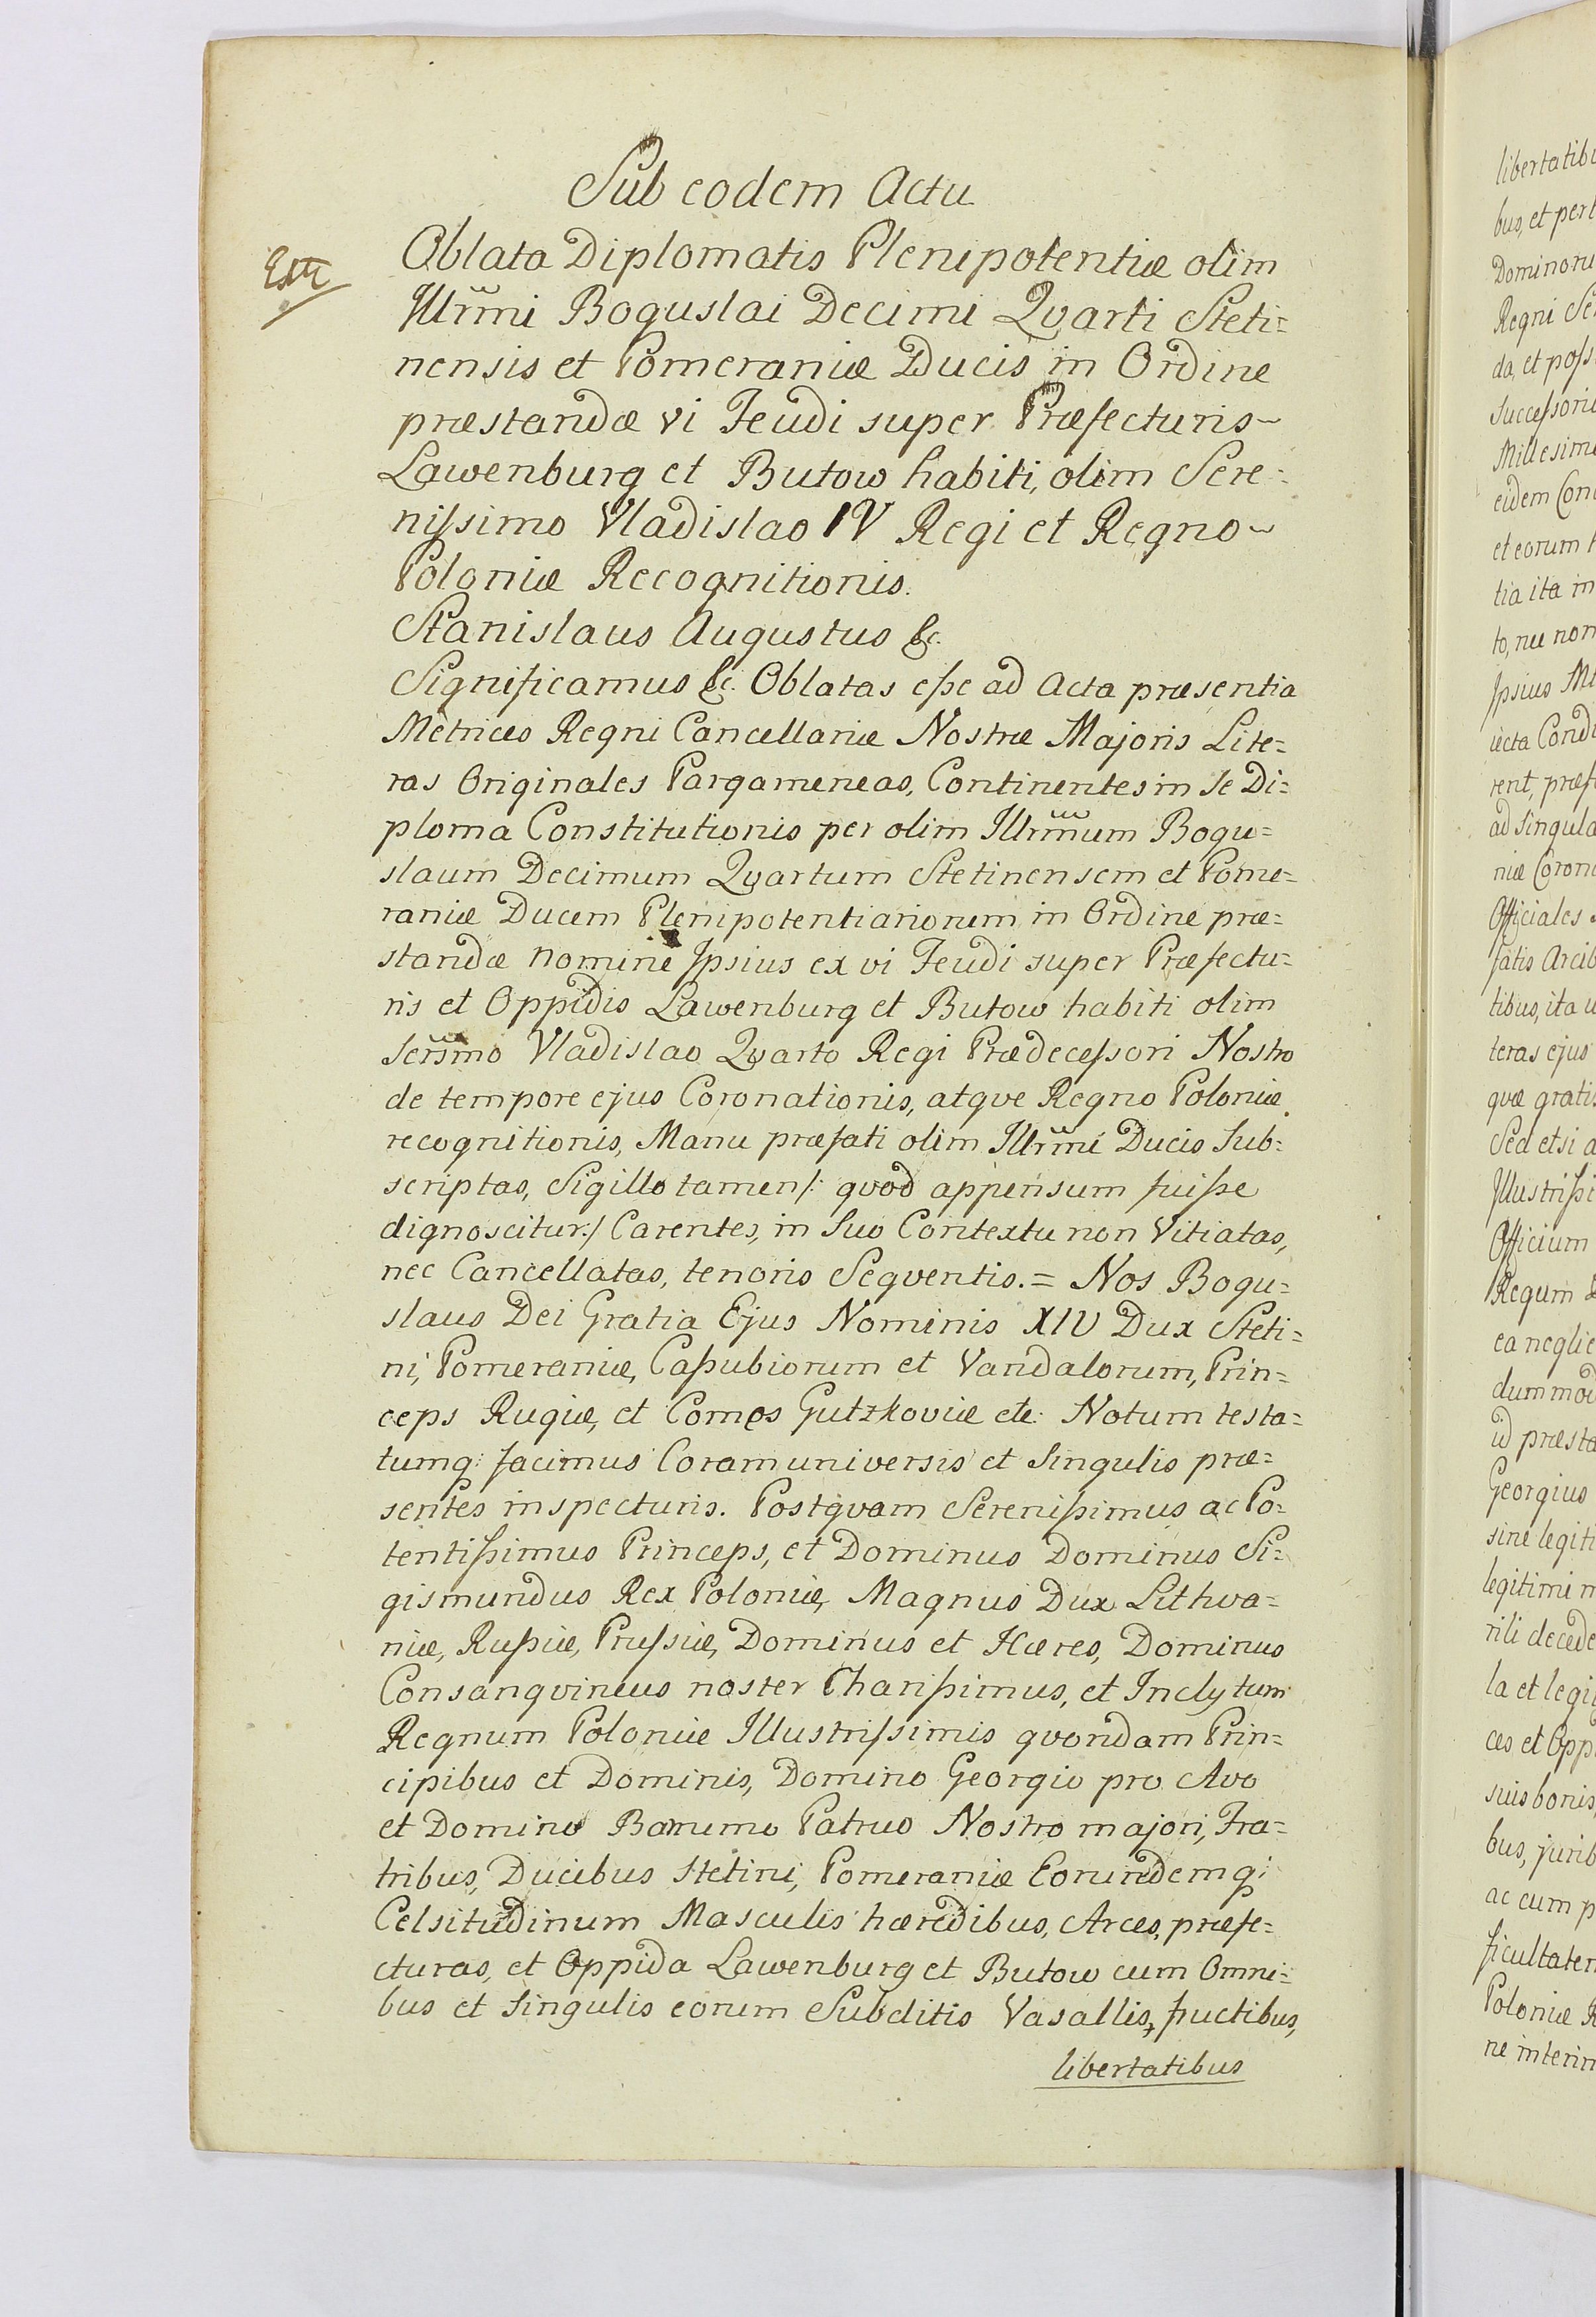 Sub eodem Actu
Extr
Oblata Diplomatis Plenipotentiæ olim
Illr̃mi Boguslai Decimi Qvarti Steti=
nensis et Pomeraniæ Ducis in Ordine
præstandæ vi Feudi super Præfecturis~
Lawenburg et Butow habiti, olim Sere=
nissimo Vladislao IV Regi et Regno~
Poloniæ Recognitionis.
Stanislaus Augustus &c.
Significamus &c. Oblatas esse ad Acta præsentia
Metrices Regni Cancellariæ Nostræ Majoris Lite=
ras Originales Pargameneas, Continentes in se Di=
ploma Constitutionis per olim Illr̃mum Bogu=
slaum Decimum Qvartum Stetinensem et Pome=
raniæ Ducem Plenipotentiariorum in Ordine præ=
standæ nomine Ipsius ex vi Feudi super Præfectu=
ris et Oppidis Lawenburg et Butow habiti olim
Sers̃mo Vladislao Qvarto Regi Prædecessori Nostro
de tempore ejus Coronationis, atqve Regno Poloniæ
recognitionis, Manu præfati olim Illr̃mi Ducis Sub=
scriptas, Sigillo tamen /: qvod appensum fuisse
dignoscitur :/ Carentes, in Suo Contextu non Vitiatas,
nec Cancellatas, tenoris Seqventis. = Nos Bogu=
slaus Dei Gratia Ejus Nominis XIV Dux Steti=
ni, Pomeraniæ, Cassubiorum et Vandalorum, Prin=
ceps Rugiæ, et Comes Gutzkoviæ etc: Notum testa=
tumq: facimus Coram universis et Singulis præ=
sentes inspecturis. Postqvam Serenissimus ac Po=
tentissimus Princeps, et Dominus Dominus Si=
gismundus Rex Poloniæ, Magnus Dux Lithva=
niæ, Russiæ, Prussiæ, Dominus et Hæres, Dominus
Consangvineus noster Charissimus, et Inclytum
Regnum Poloniæ Illustrissimis qvondam Prin=
cipibus et Dominis, Domino Georgio pro Avo
et Domino Barnimo Patruo Nostro majori, Fra=
tribus, Ducibus Stetini, Pomeraniæ Eorundemq:
Celsitudinum Masculis hæredibus, Arces, præfe=
cturas, et Oppida Lawenburg et Butow cum Omni=
bus et Singulis eorum Subditis Vasallis, fructibus,
libertatibus